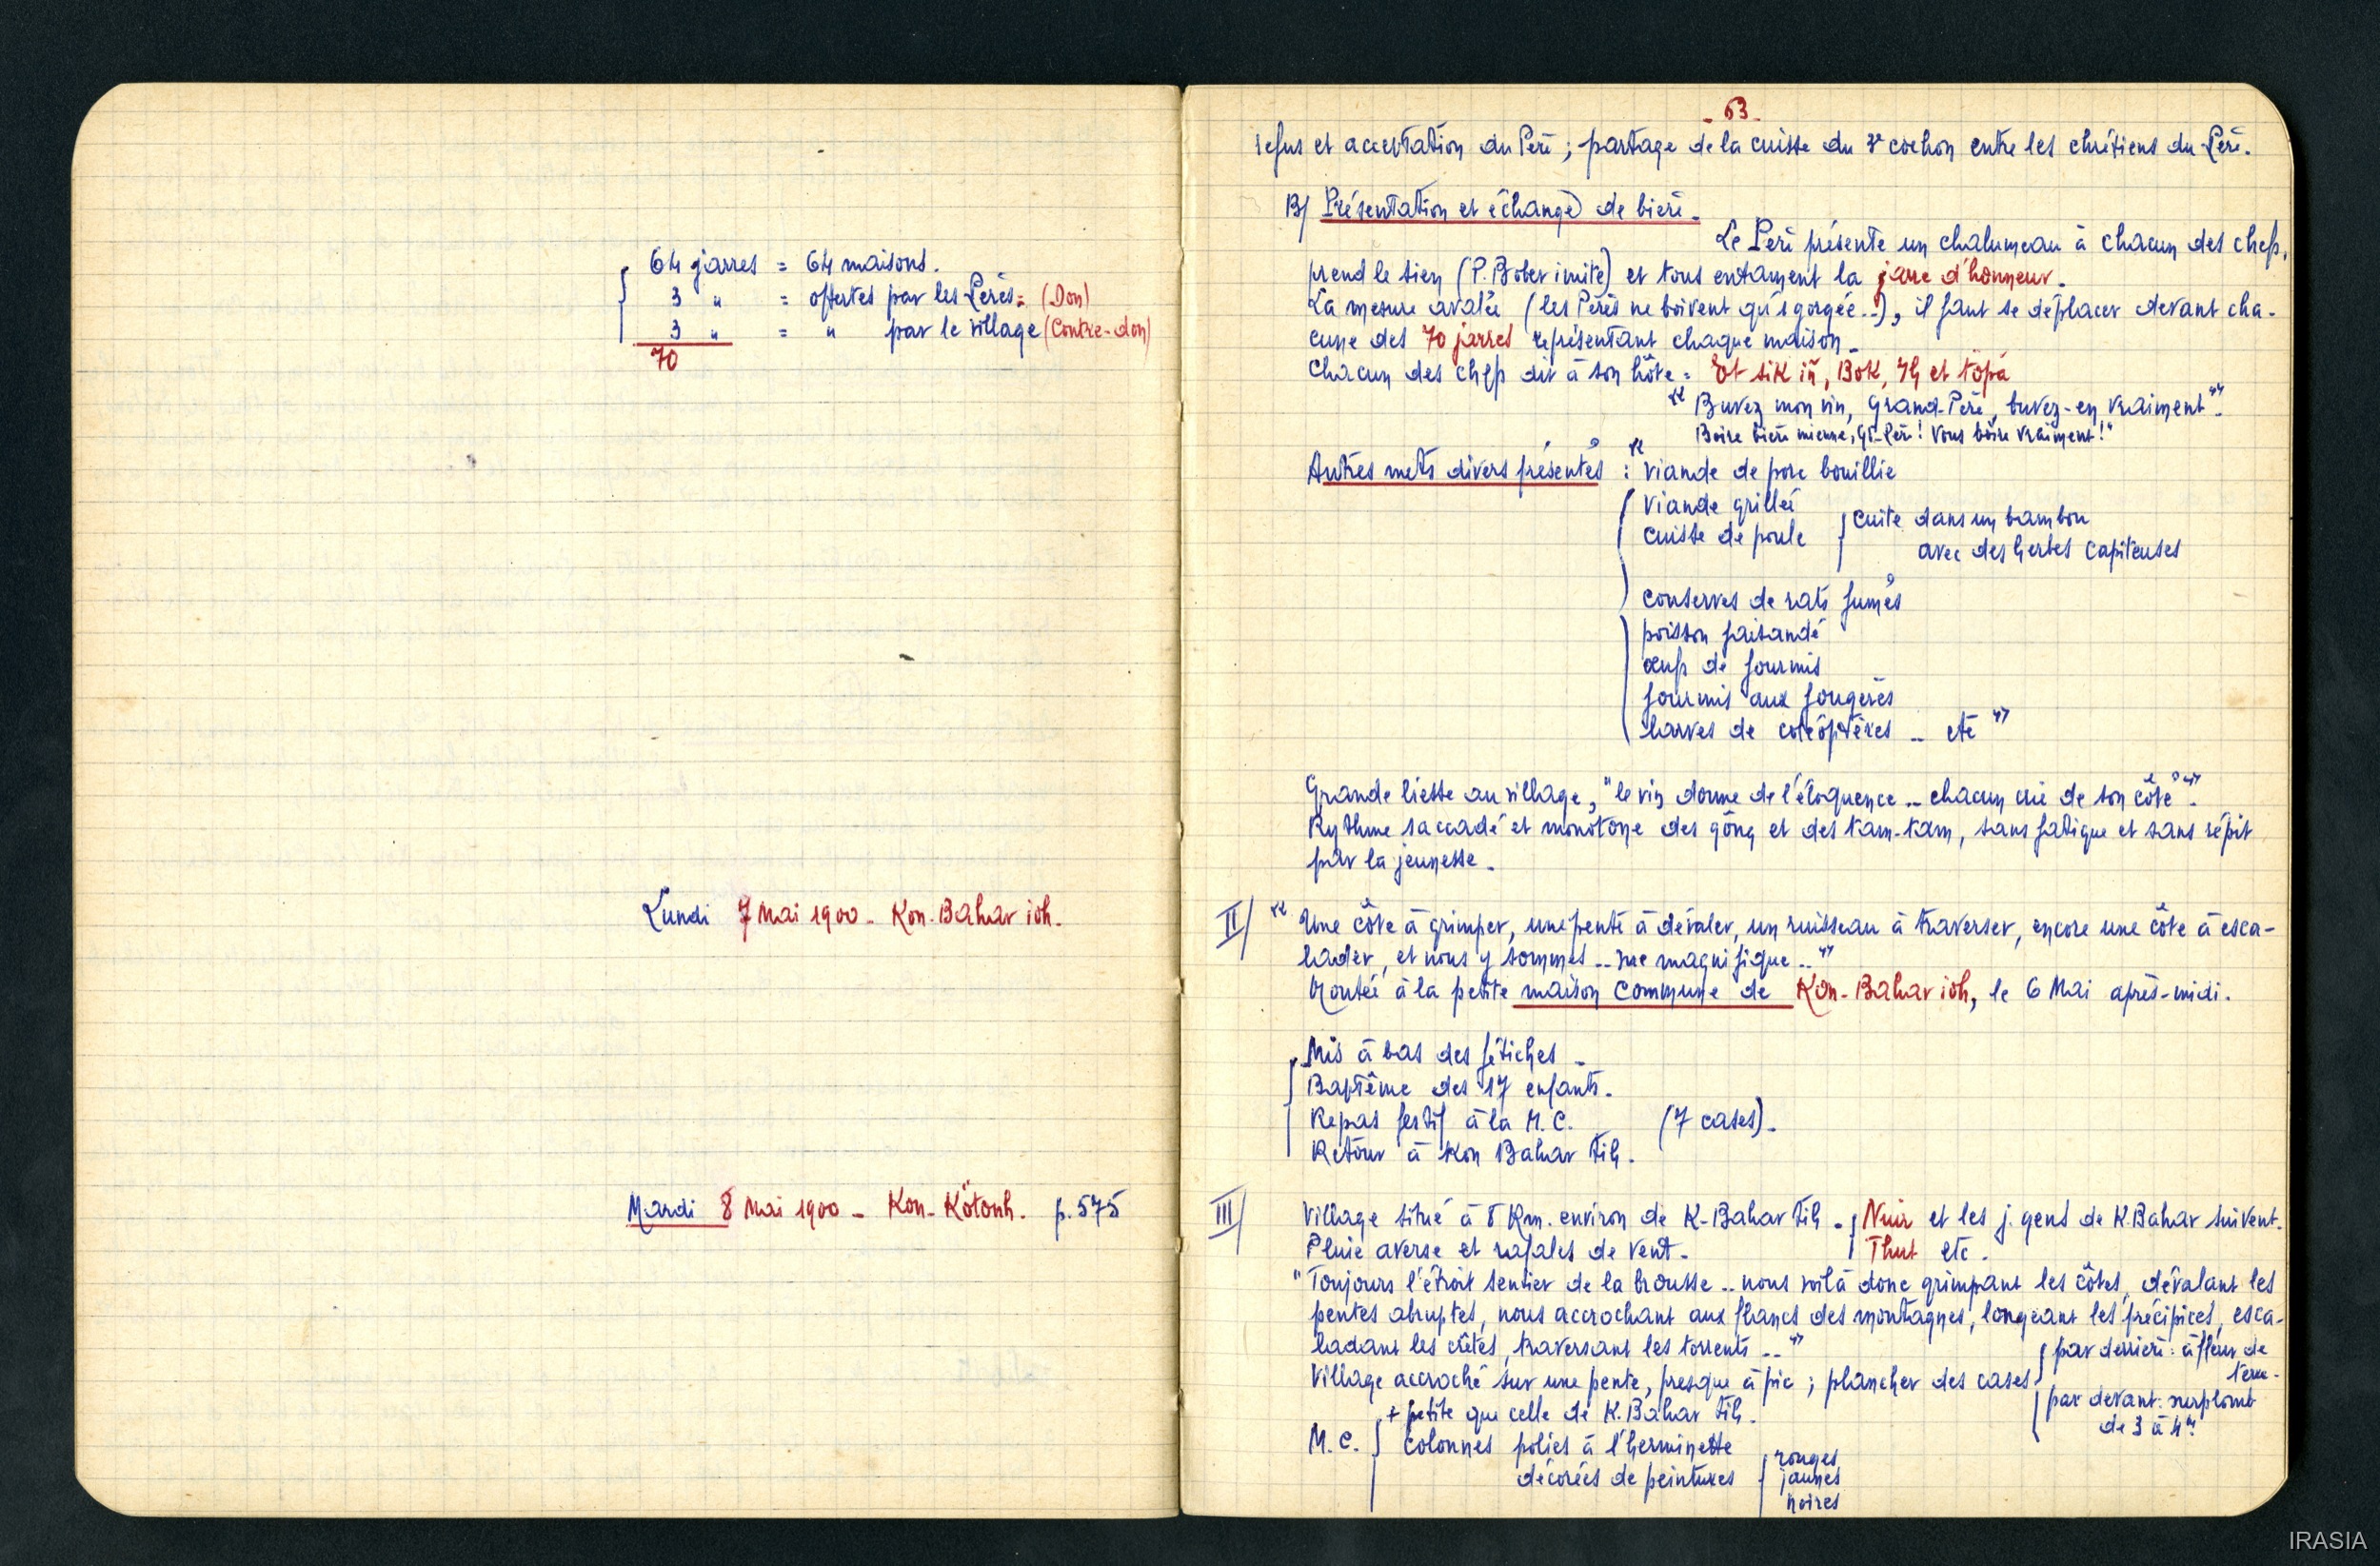 64 jarres = 64 maisons.
3 " = offertes par les Pères = (Don)
3 " = " par le village (Contre-don)
70
Lundi 7 Mai 1900 - Kon-Bahar ioh.
Mardi 8 Mai 1900 - Kon-Kötonh. p. 575
- 63 -
refus et acceptation du Père ; partage de la cuisse du 3e cochon entre les chrétiens du Père.
B/ Présentation et échange de bière -
Le Père présente un chalumeau à chacun des chefs,
prend le sien (P. Bober imite) et tous entament la jarre d'honneur.
La mesure avalée (les Pères ne boivent qu'1 gorgée..), il faut se déplacer devant cha-
cune des 70 jarres représentant chaque maison -
Chacun des chefs dit à son hôte : Et sik iñ, Bok, Ih et töpă
"Buvez mon vin, Grand-Père, buvez-en vraiment".
Boire bière mienne, Gd-Père ! Vous boire vraiment !"
Autres mets divers présentés : " viande de porc bouillie
viande grillée
cuisse de poule } cuite dans un bambou
avec des herbes capiteuses
conserves de rats fumés
poisson faisandé
œufs de fourmis
fourmis aux fougères
larves de coléoptères - etc "
Grande liesse au village, "le vin donne de l'éloquence .. chacun crie de son côté".
Rythme saccadé et monotone des gong et des tam-tam, sans fatigue et sans répit
par la jeunesse -
II/ " Une côte à grimper, une pente à dévaler, un ruisseau à traverser, encore une côte à esca-
lader, et nous y sommes .. vue magnifique .. "
Montée à la petite maison commune de Kon-Bahar ioh, le 6 Mai après-midi.
Mis à bas des fétiches -
Baptême des 17 enfants.
Repas festif à la M.C. (7 cases).
Retour à Kon Bahar tih.
III/ Village situé à 8 Km. environ de K-Bahar tih - { Nuir et les j. gens de K.Bahar suivent.
Pluie averse et rafales de vent - Thut etc.
"Toujours l'étroit sentier de la brousse .. nous voilà donc grimpant les côtes, dévalant les
pentes abruptes, nous accrochant aux flancs des montagnes, longeant les précipices, esca-
ladant les crêtes, traversant les torrents .. "
Village accroché sur une pente, presque à pic ; plancher des cases { par derrière : à fleur de
terre -
par devant : surplomb
de 3 à 4m.
M.C. { + petite que celle de K. Bahar tih.
colonnes polies à l'herminette
décorées de peintures { rouges
jaunes
noires
IRASIA